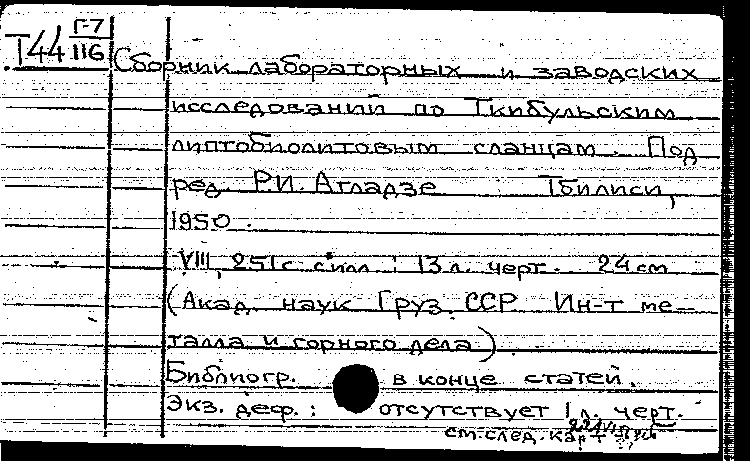 Г-7
Т44 116
Сборник лабораторных и заводских
исследований по Ткибульским
липтобиолитовым сланцам. Под
ред. Р.И. Агладзе Тбилиси,
1950.
VIII, 251 с. с илл.; 13 л. черт. 24 см
(Акад. наук Груз. ССР Ин-т ме-
талла и горного дела).
Библиогр. в конце статей.
Экз. деф.: отсутствует 1 л. черт.
см. след. карт